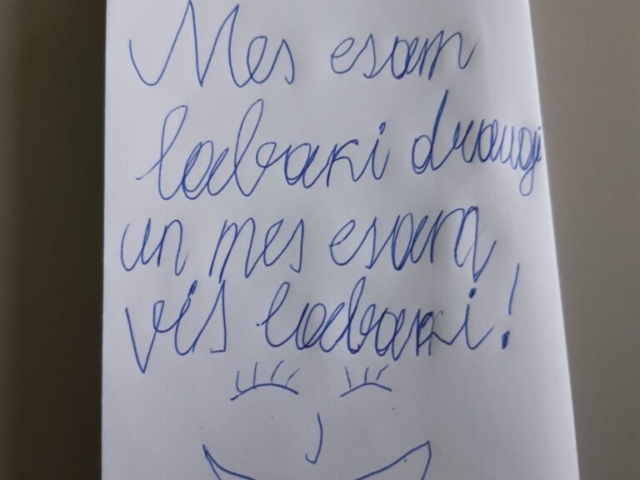 Mes esam
labaki draugi
un mes esam
vis labaki!